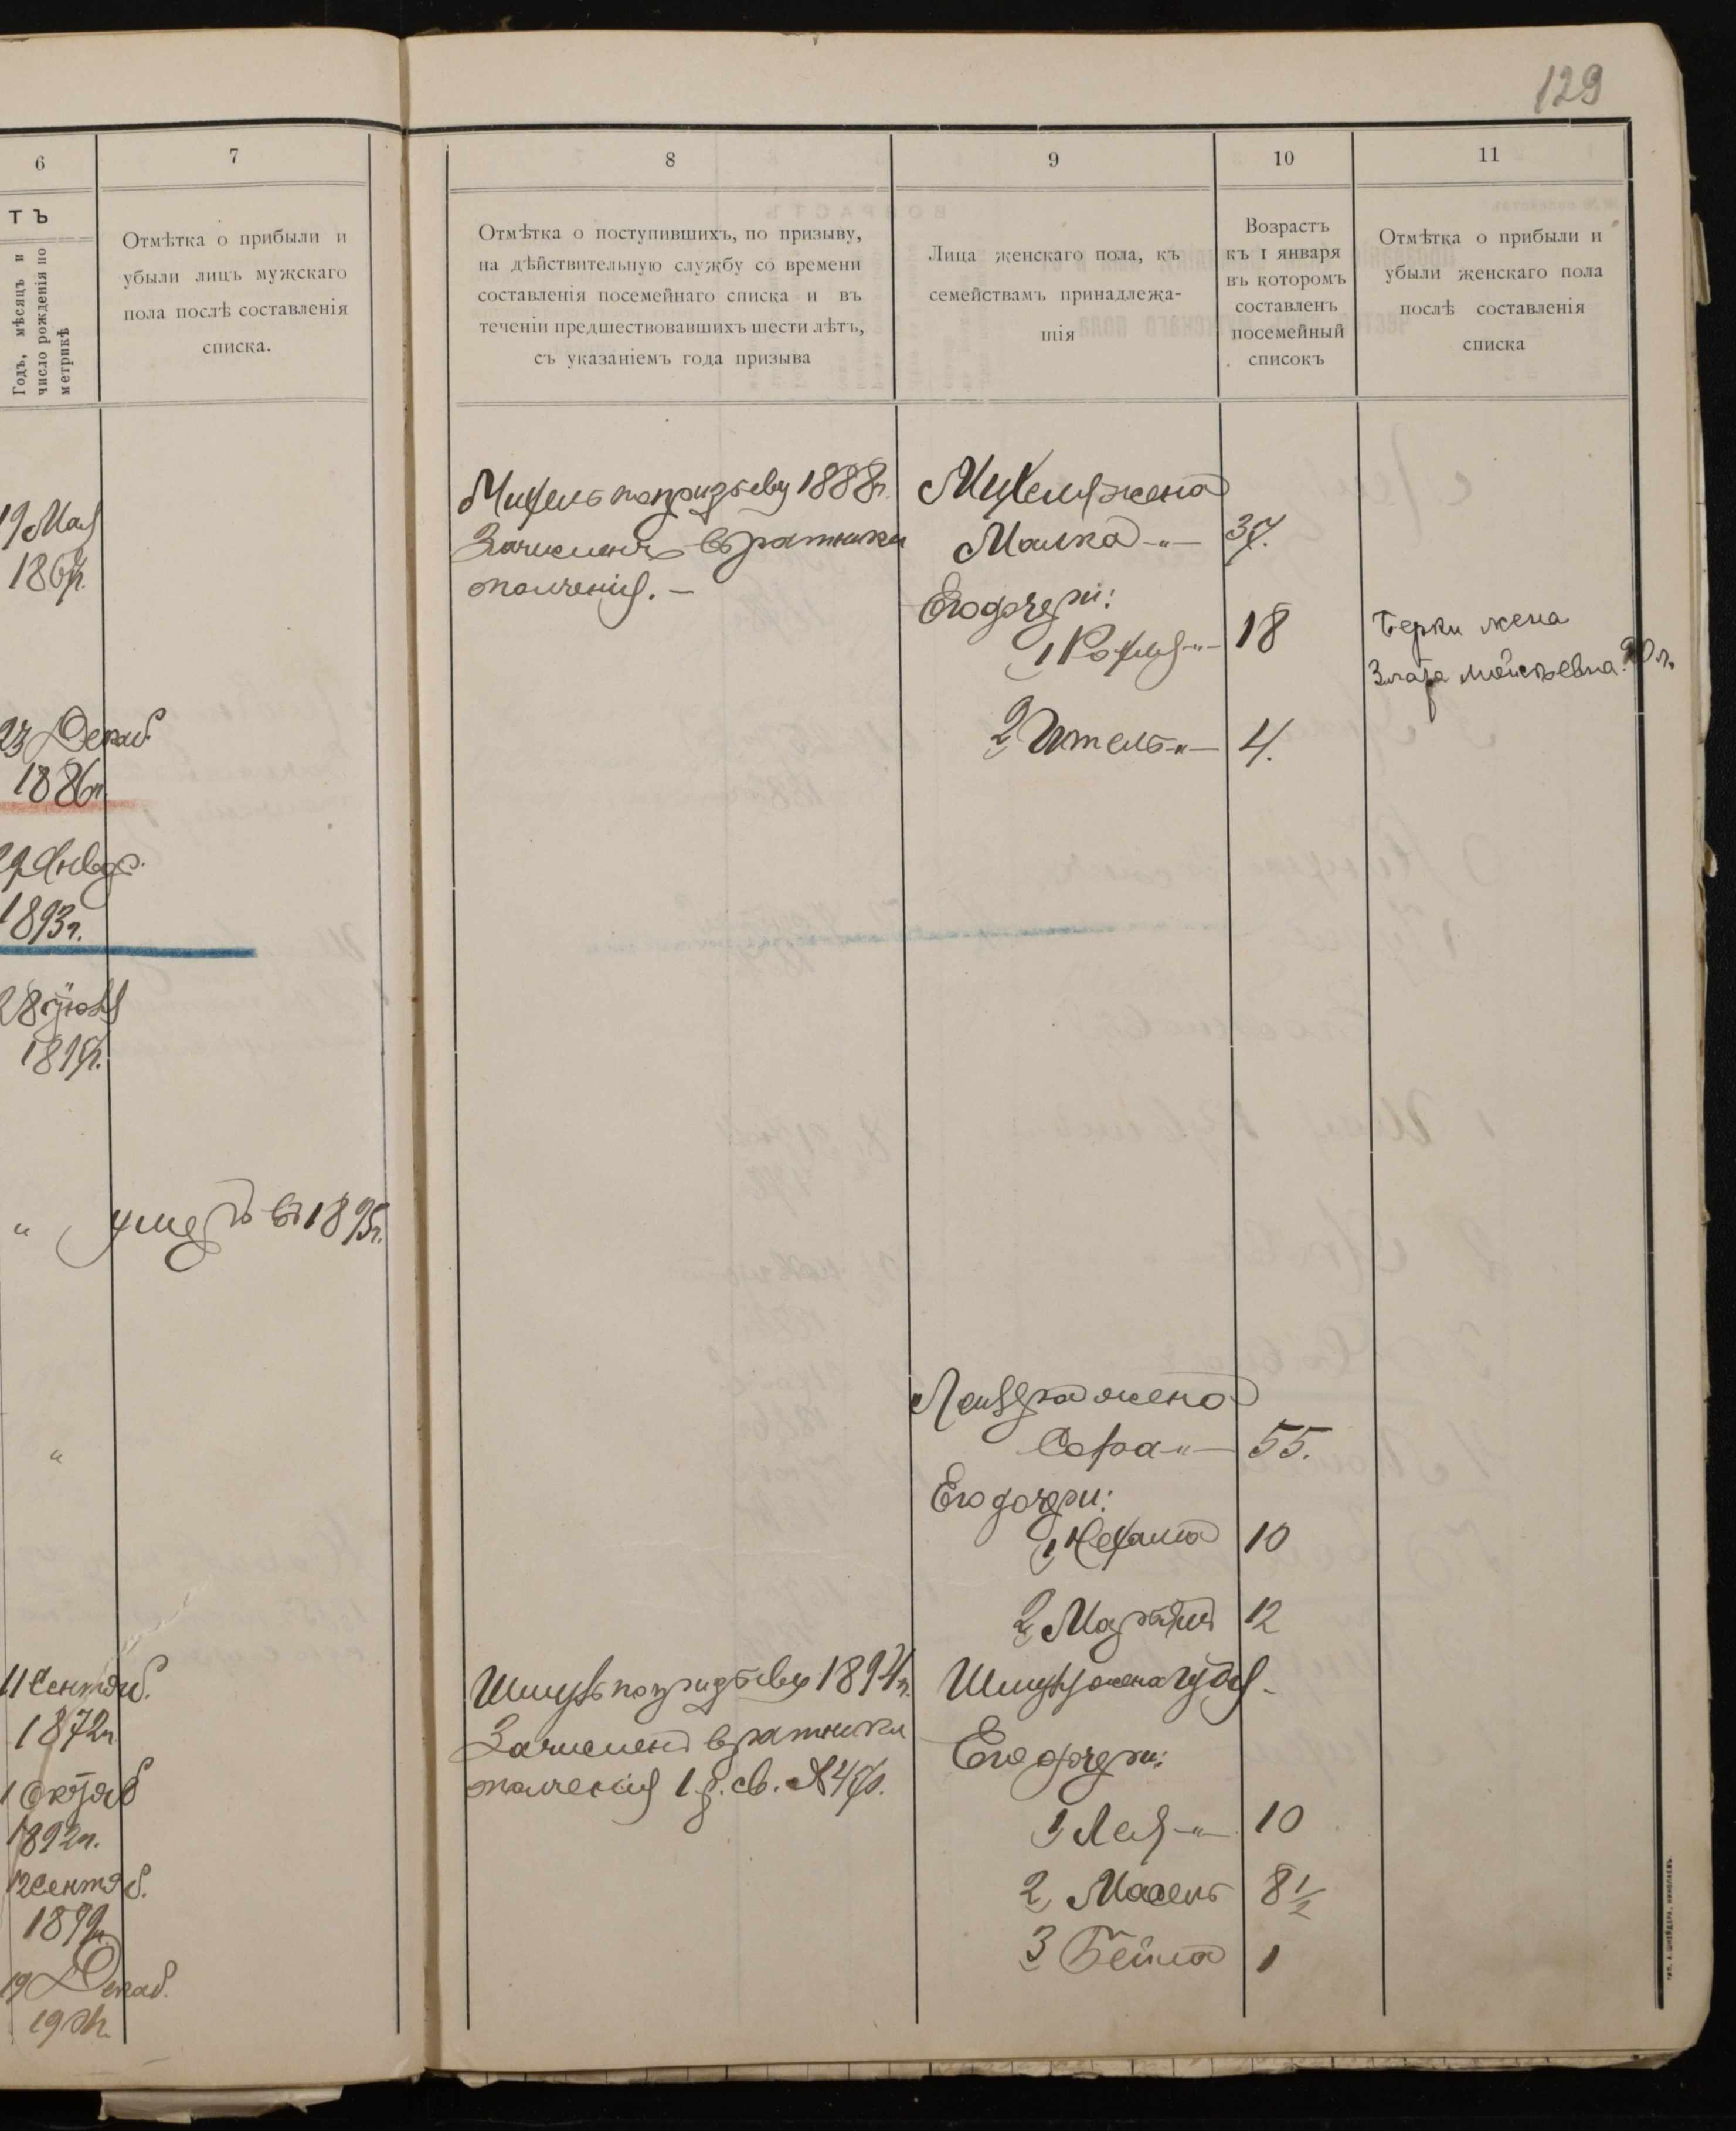 129
6
ТЪ
Годъ, мѣсяцъ и
число рожденія по
метрикѣ
7
Отмѣтка о прибыли и
убыли лицъ мужскаго
пола послѣ составленія
списка.
8
Отмѣтка о поступившихъ, по призыву,
на дѣйствительную службу со времени
составленія посемейнаго списка и въ
теченіи предшествовавшихъ шести лѣтъ,
съ указаніемъ года призыва
9
Лица женскаго пола, къ
семействамъ принадлежа-
щія
10
Возрастъ
къ 1 января
въ которомъ
составленъ
посемейный
списокъ
11
Отмѣтка о прибыли и
убыли женскаго пола
послѣ составленія
списка
19 Мая
1867г.
23 Декаб.
1886г.
29 Январ.
1893г.
28
" умеръ въ 1895г.
"
11 Сентяб.
1872г.
1 Октяб
1892г.
12 Сентяб.
19 Декаб.
Михель по призыву 1888г.
Зачисленъ въ ратники
ополченія. —
Шмуль по призыву 1894г.
Зачисленъ в ратники
ополченія 1 р. св. №
Михеля жена
Малка -"- 37.
Его дочери:
1 Рохля -"- 18
2 Ител -"- 4.
Лейзера жена
Сора -"- 55.
Его дочери:
1 Нехама 10
2 12
Шмуля жена
Его дочери:
1 Лея -"- 10
2 8 1/2
3 Бейла 1
Берки жена
Злата Мойсѣевна. 20 л.